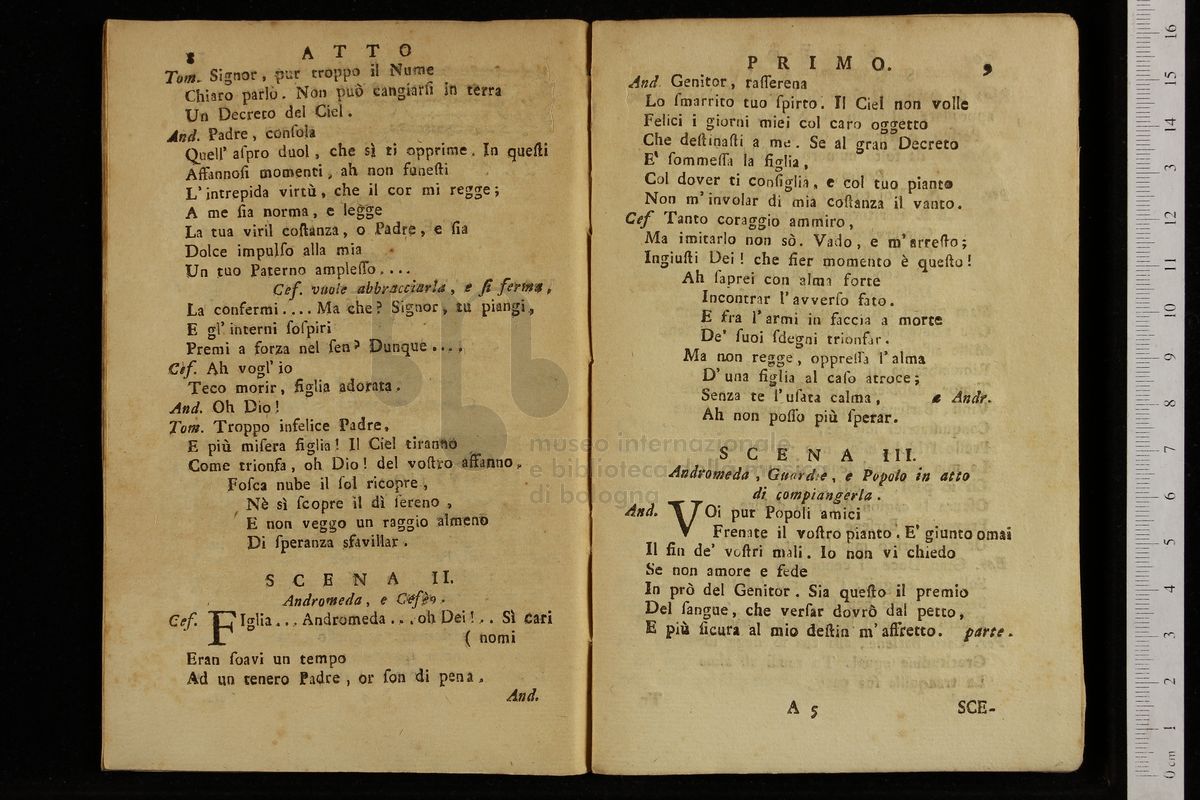 8 ATTO
Tom. Signor, pur troppo il Nume
Chiaro parlò. Non può cangiarſi in terra
Un Decreto del Ciel.
And. Padre, conſola
Quell' aſpro duol, che sì ti opprime. In queſti
Affannoſi momenti, ah non funeſti
L'intrepida virtù, che il cor mi regge;
A me ſia norma, e legge
La tua viril coſtanza, o Padre, e ſia
Dolce impulſo alla mia
Un tuo Paterno ampleſſo....
Cef. vuole abbracciarla, e ſi ferma,
La confermi.... Ma che? Signor, tu piangi,
E gl' interni ſoſpiri
Premi a forza nel ſen? Dunque....
Cef. Ah vogl' io
Teco morir, figlia adorata.
And. Oh Dio!
Tom. Troppo infelice Padre,
E più miſera figlia! Il Ciel tiranno
Come trionfa, oh Dio! del voſtro affanno,
Foſca nube il ſol ricopre,
Nè sì ſcopre il dì ſereno,
E non veggo un raggio almeno
Di ſperanza sfavillar.
SCENA II.
Andromeda, e Cefeo.
Cef. FIglia... Andromeda... oh Dei!.. Sì cari
( nomi
Eran ſoavi un tempo
Ad un tenero Padre, or ſon di pena.
And.
PRIMO. 9
And. Genitor, raſſerena
Lo ſmarrito tuo ſpirto. Il Ciel non volle
Felici i giorni miei col caro oggetto
Che deſtinaſti a me. Se al gran Decreto
E' ſommeſſa la figlia,
Col dover ti conſiglia, e col tuo pianto
Non m'involar di mia coſtanza il vanto.
Cef Tanto coraggio ammiro,
Ma imitarlo non sò. Vado, e m'arreſto;
Ingiuſti Dei! che fier momento è queſto!
Ah ſaprei con alma forte
Incontrar l'avverſo fato.
E fra l'armi in faccia a morte
De' ſuoi ſdegni trionfar.
Ma non regge, oppreſſa l'alma
D'una figlia al caſo atroce;
Senza te l'uſata calma, a Andr.
Ah non poſſo più ſperar.
SCENA III.
Andromeda, Guardie, e Popolo in atto
di compiangerla.
And. VOi pur Popoli amici
Frenate il voſtro pianto. E' giunto omai
Il fin de' voſtri mali. Io non vi chiedo
Se non amore e fede
In prò del Genitor. Sia queſto il premio
Del ſangue, che verſar dovrò dal petto,
E più ſicura al mio deſtin m'affretto. parte.
A 5 SCE-
museo internazionale
e biblioteca della musica
di bologna